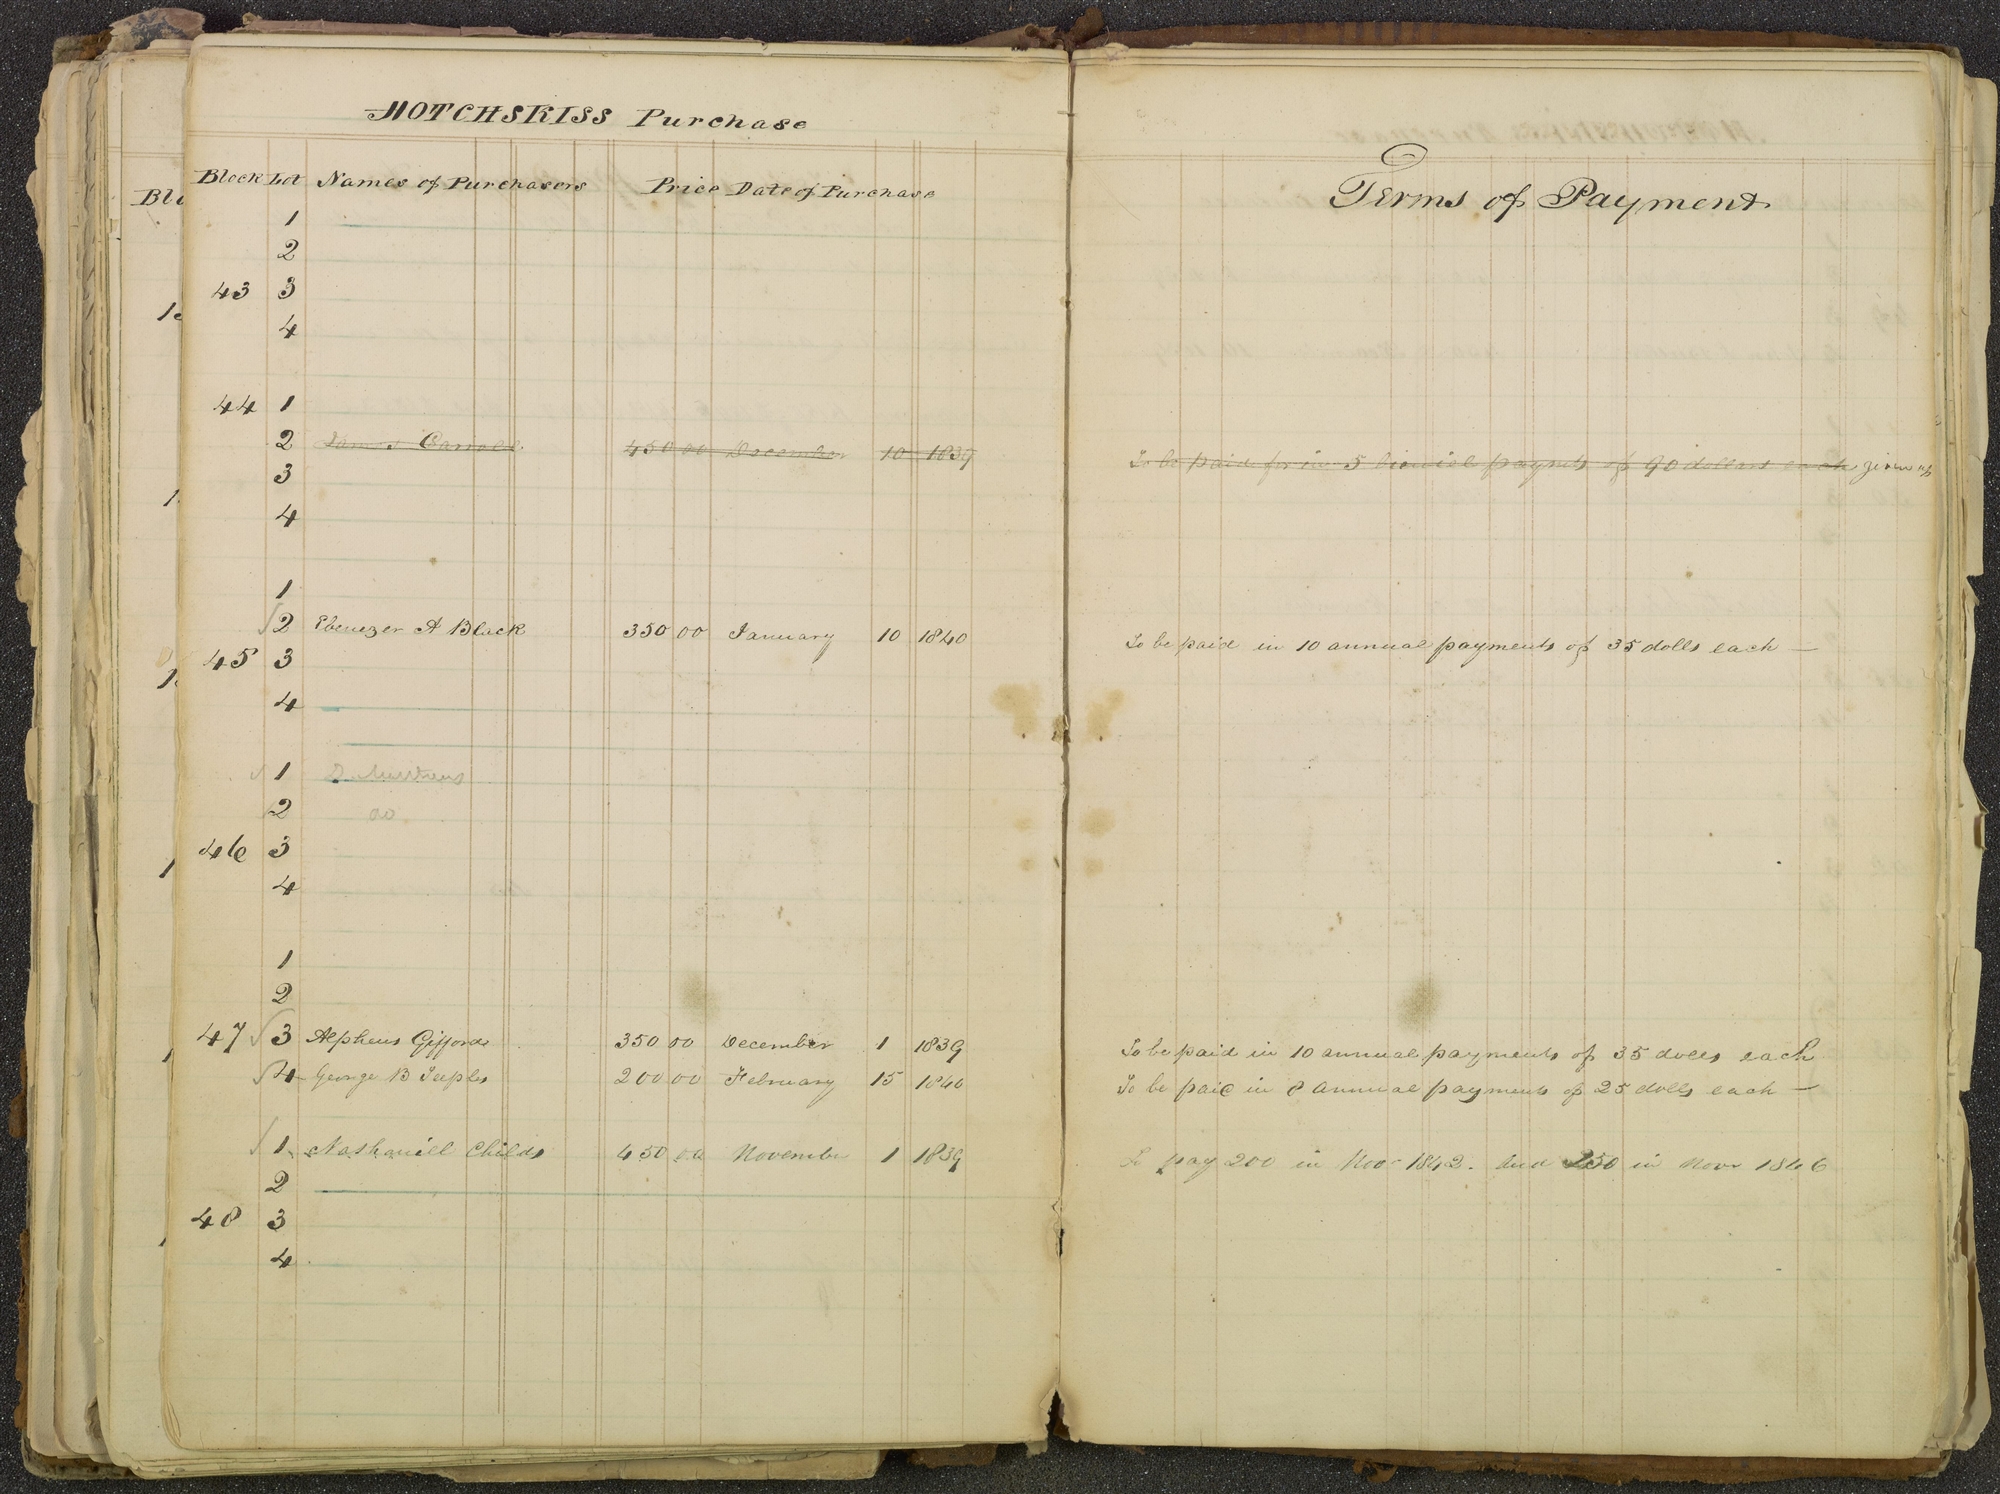 HOTCHSKISS Purchase
Block Lot Names of Purchasers Price Date of Purchase
Terms of Payment
1
2
43 3
4
44 1
2 James Carroll 450 00 December 10 1839 To be paid for in 5 bienial paymts of 90 dollars each given up
3
4
1
2 Ebenezer A Black 350 00 January 10 1840 To be paid in 10 annual payments of 35 dolls each —
45 3
4
1
2 do
46 3
4
1
2
47 3 Alpheus Gifford 350 00 December 1 1839 To be paid in 10 annual payments of 35 dolls each
4 George B Teeples 200 00 February 15 1840 To be paid in 8 annual payments of 25 dolls each —
1 Nathaniel Childs 450 00 November 1 1839 To pay 200 in Novr 1842. And 250 in Novr 1846
2
48 3
4